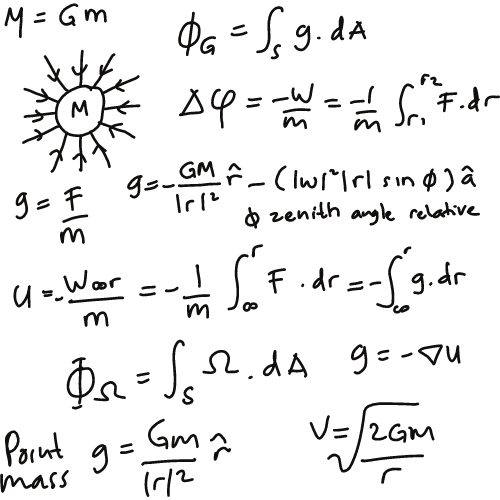 M = Gm
ϕ_G = ∫_S g. dA
M
Δφ = -W/m = -1/m ∫_{r1}^{r2} F.dr
g = F/m
g = -GM/|r|² r̂ - (|w|²|r| sin ϕ) â
ϕ zenith angle relative
U = -W∞r/m = -1/m ∫_∞^r F . dr = -∫_∞^r g.dr
Φ_Ω = ∫_S Ω . dA
g = -∇U
Point mass g = Gm/|r|² r̂
V = √(2Gm/r)